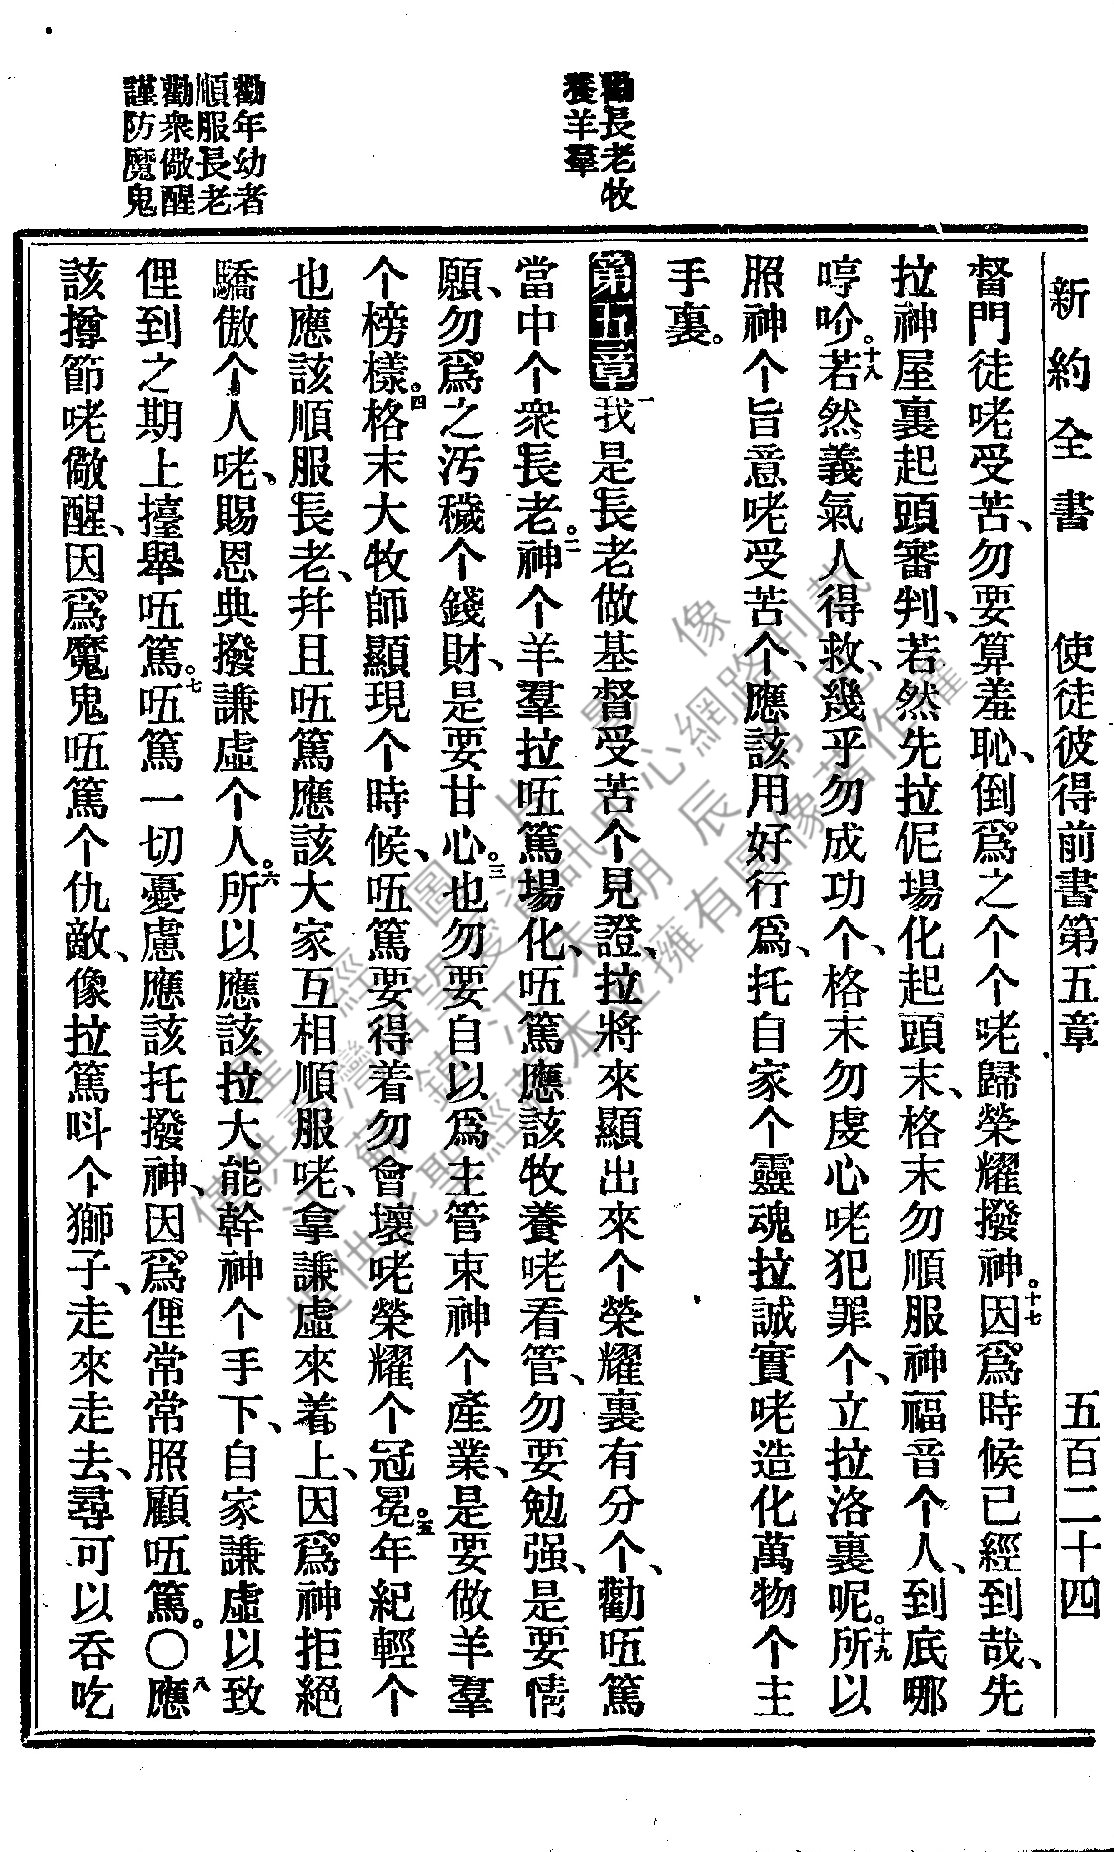 新約全書　使徒彼得前書第五章　五百二十四
督門徒咾受苦、勿要算羞恥、倒爲之个个咾歸榮耀撥神。十七因爲時候已經到哉、先
拉神屋裏起頭審判、若然先拉伲場化起頭末、格末勿順服神福音个人、到底哪
哼吤。十八若然義氣人得救、幾乎勿成功个、格末勿虔心咾犯罪个、立拉洛裏呢。十九所以
照神个旨意咾受苦个、應該用好行爲、托自家个靈魂拉誠實咾造化萬物个主
手裏。
勸長老牧
養羊羣
第五章一我是長老做基督受苦个見證、拉將來顯出來个榮耀裏有分个、勸㕶篤
當中个衆長老。二神个羊羣拉㕶篤場化、㕶篤應該牧養咾看管、勿要勉强、是要情
願、勿爲之污穢个錢財、是要甘心。三也勿要自以爲主管束神个產業、是要做羊羣
个榜樣。四格末大牧師顯現个時候、㕶篤要得着勿會壞咾榮耀个冠冕。五年紀輕个
勸年幼者
順服長老
也應該順服長老、幷且㕶篤應該大家互相順服咾、拿謙虛來着上、因爲神拒絕
驕傲个人咾、賜恩典撥謙虛个人。六所以應該拉大能幹神个手下、自家謙虛以致
俚到之期上擡舉㕶篤。七㕶篤一切憂慮應該托撥神、因爲俚常常照顧㕶篤。〇八應
勸衆儆醒
謹防魔鬼
該撙節咾儆醒、因爲魔鬼㕶篤个仇敵、像拉篤呌个獅子、走來走去、尋可以呑吃